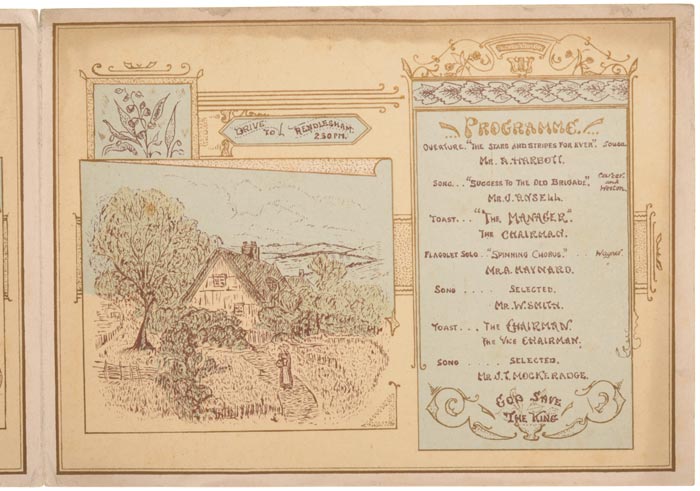 DRIVE TO RENDLESHAM.
2.30 P.M.
PROGRAMME.
OVERTURE. "THE STARS AND STRIPES FOR EVER". Sousa
MR. A. HARBOTT.
SONG... "SUCCESS TO THE OLD BRIGADE".
MR. J. ANSELL.
TOAST... "THE MANAGER".
THE CHAIRMAN.
FLAGOLET SOLO. "SPINNING CHORUS"... Wagner
MR. A. MAYNARD.
SONG .... SELECTED.
MR. W. SMITH.
TOAST.... THE CHAIRMAN.
THE VICE CHAIRMAN.
SONG .... SELECTED.
MR J. T. MOCKERADGE.
GOD SAVE
THE KING